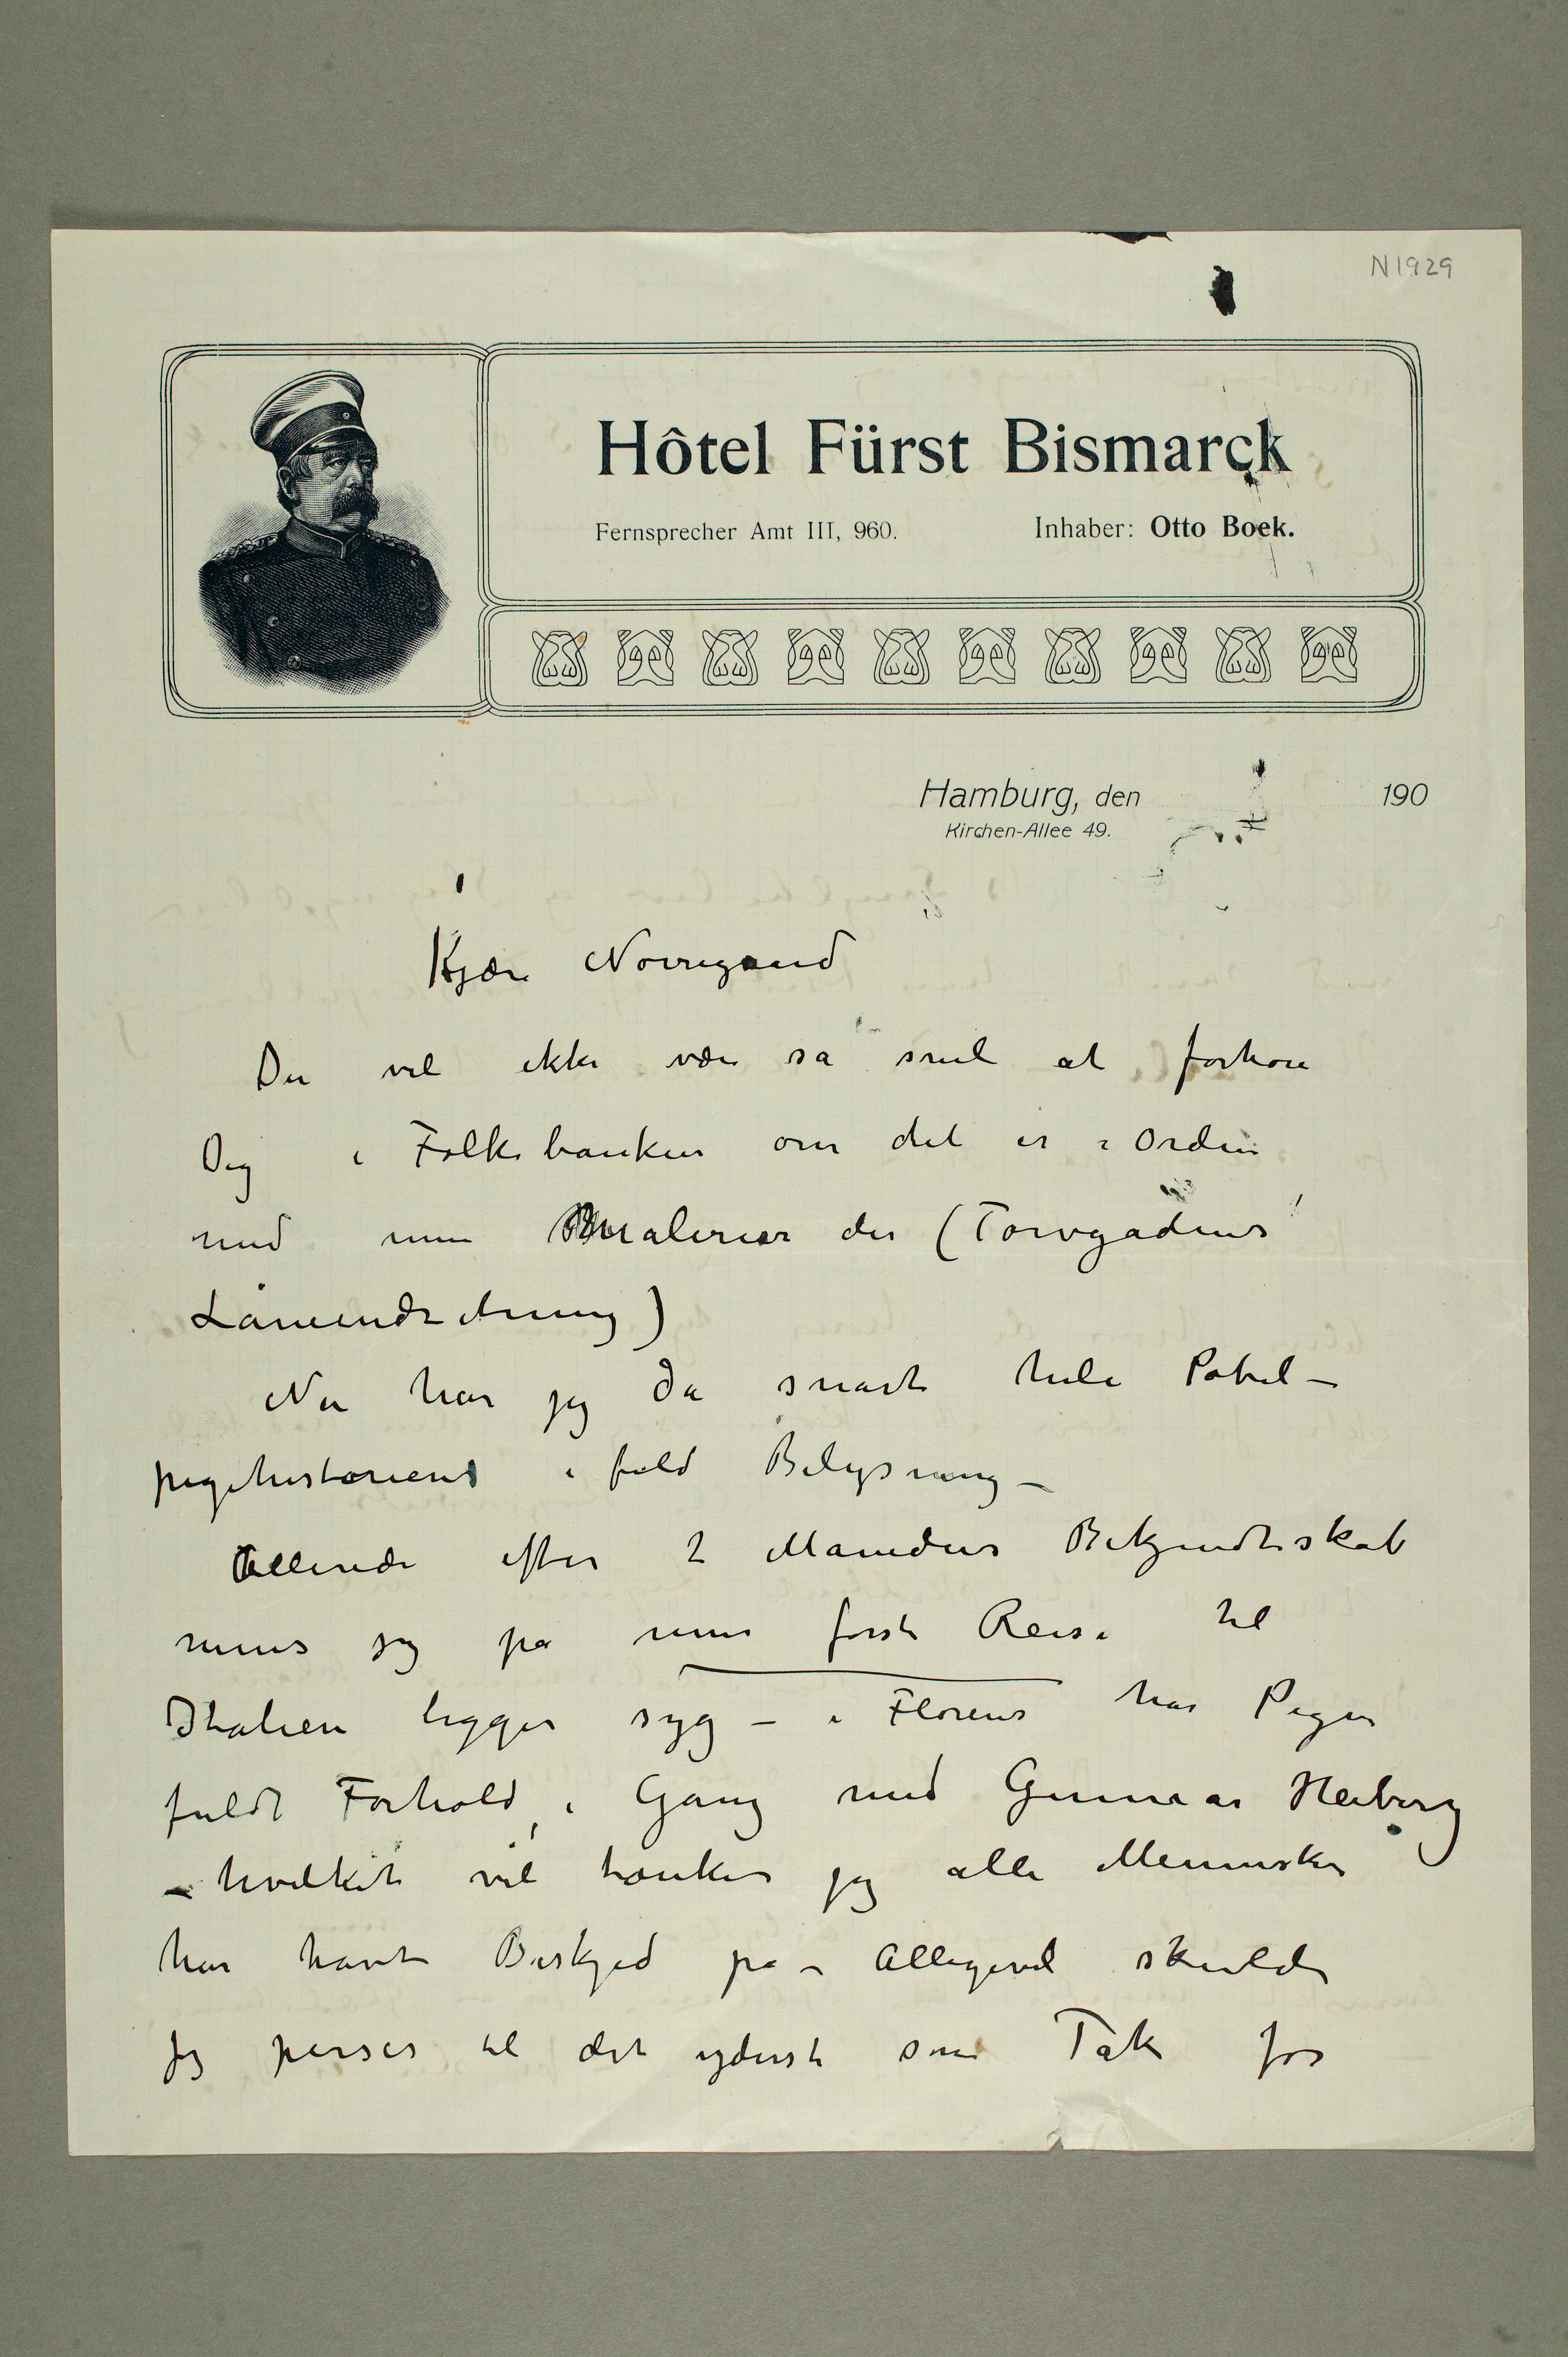 N 1929
Hôtel Fürst Bismarck
Fernsprecher Amt III, 960. Inhaber: Otto Boek.
Hamburg, den 190
Kirchen-Allee 49.
Kjære Nørregaard
Du vil ikke være så snil at forhøre
Dig i Folkebanken om det er i Orden
med mine Malerier der (Torvgadens
Låneindretning)
Nu har jeg da snart hele Pøbel–
pigehistorien i fuld Belysning –
Allerede efter 2 Måneders Bekjendtskab
mens jeg på min første Reise til
Italien ligger syg – i Florens har Pigen
fuldt Forhold i Gang med Gunnar Heiberg
– hvilket vel tænker jeg alle Mennesker
har havt Beskjed på – Alligevel skulde
jeg perses til det yderste som Tak for